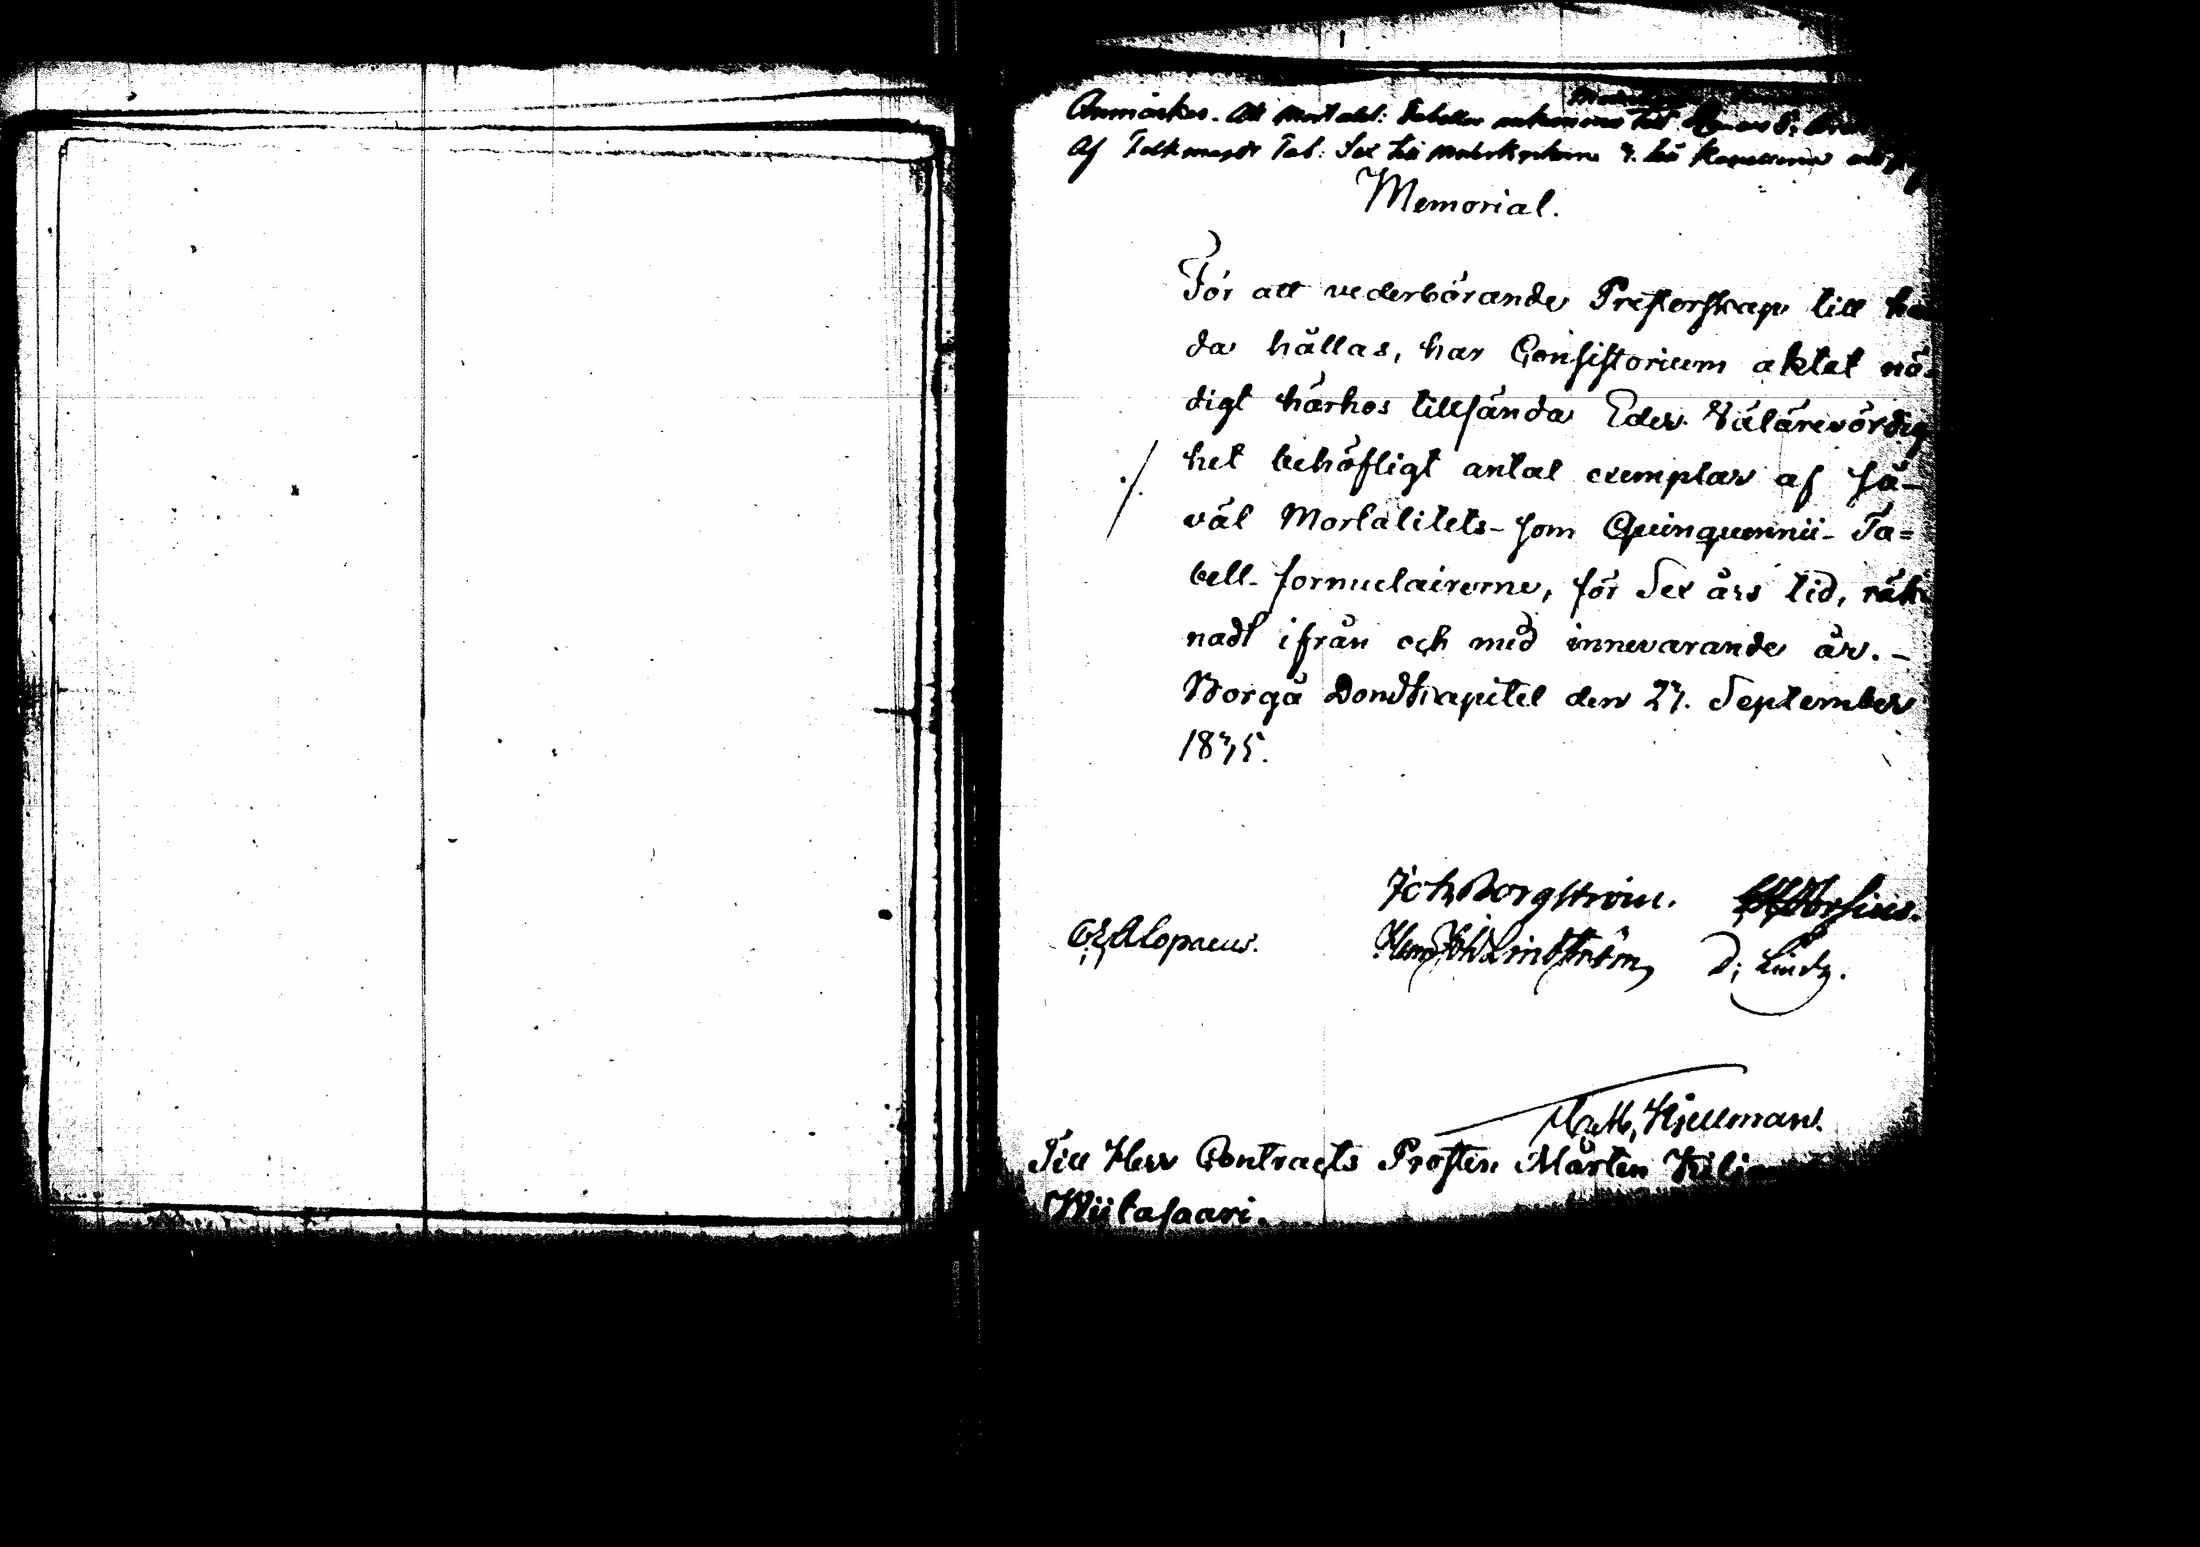 Anmärkes. Att Mortalit: Tabeller ankommo till
Af Folkmängds Tab: Sex till Moderkyrkan
Memorial.
För att vederbörande Presterskap till han
da hållas, har Consistorium aktat nö-
digt härhos tillsända Eder Välärevördig
het behöfligt antal exemplar af så-
väl Mortalitets- som Quinquennii- Ta=
bell- formulairerne, för Sex års tid, räk
nadt ifrån och med innevarande år. –
Borgå Domkapitel den 27. September
1835.
Joh. Borgström.
Alopaeus. Lindström D. Lindh.
Matth. Kjellman.
Till Herr Contracts Prosten Mårten
Wiitasaari.